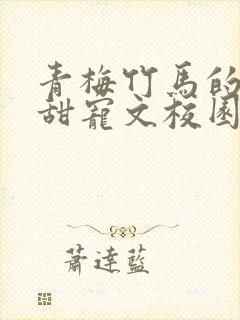 青梅竹馬的
甜寵文校園
蕭達藍